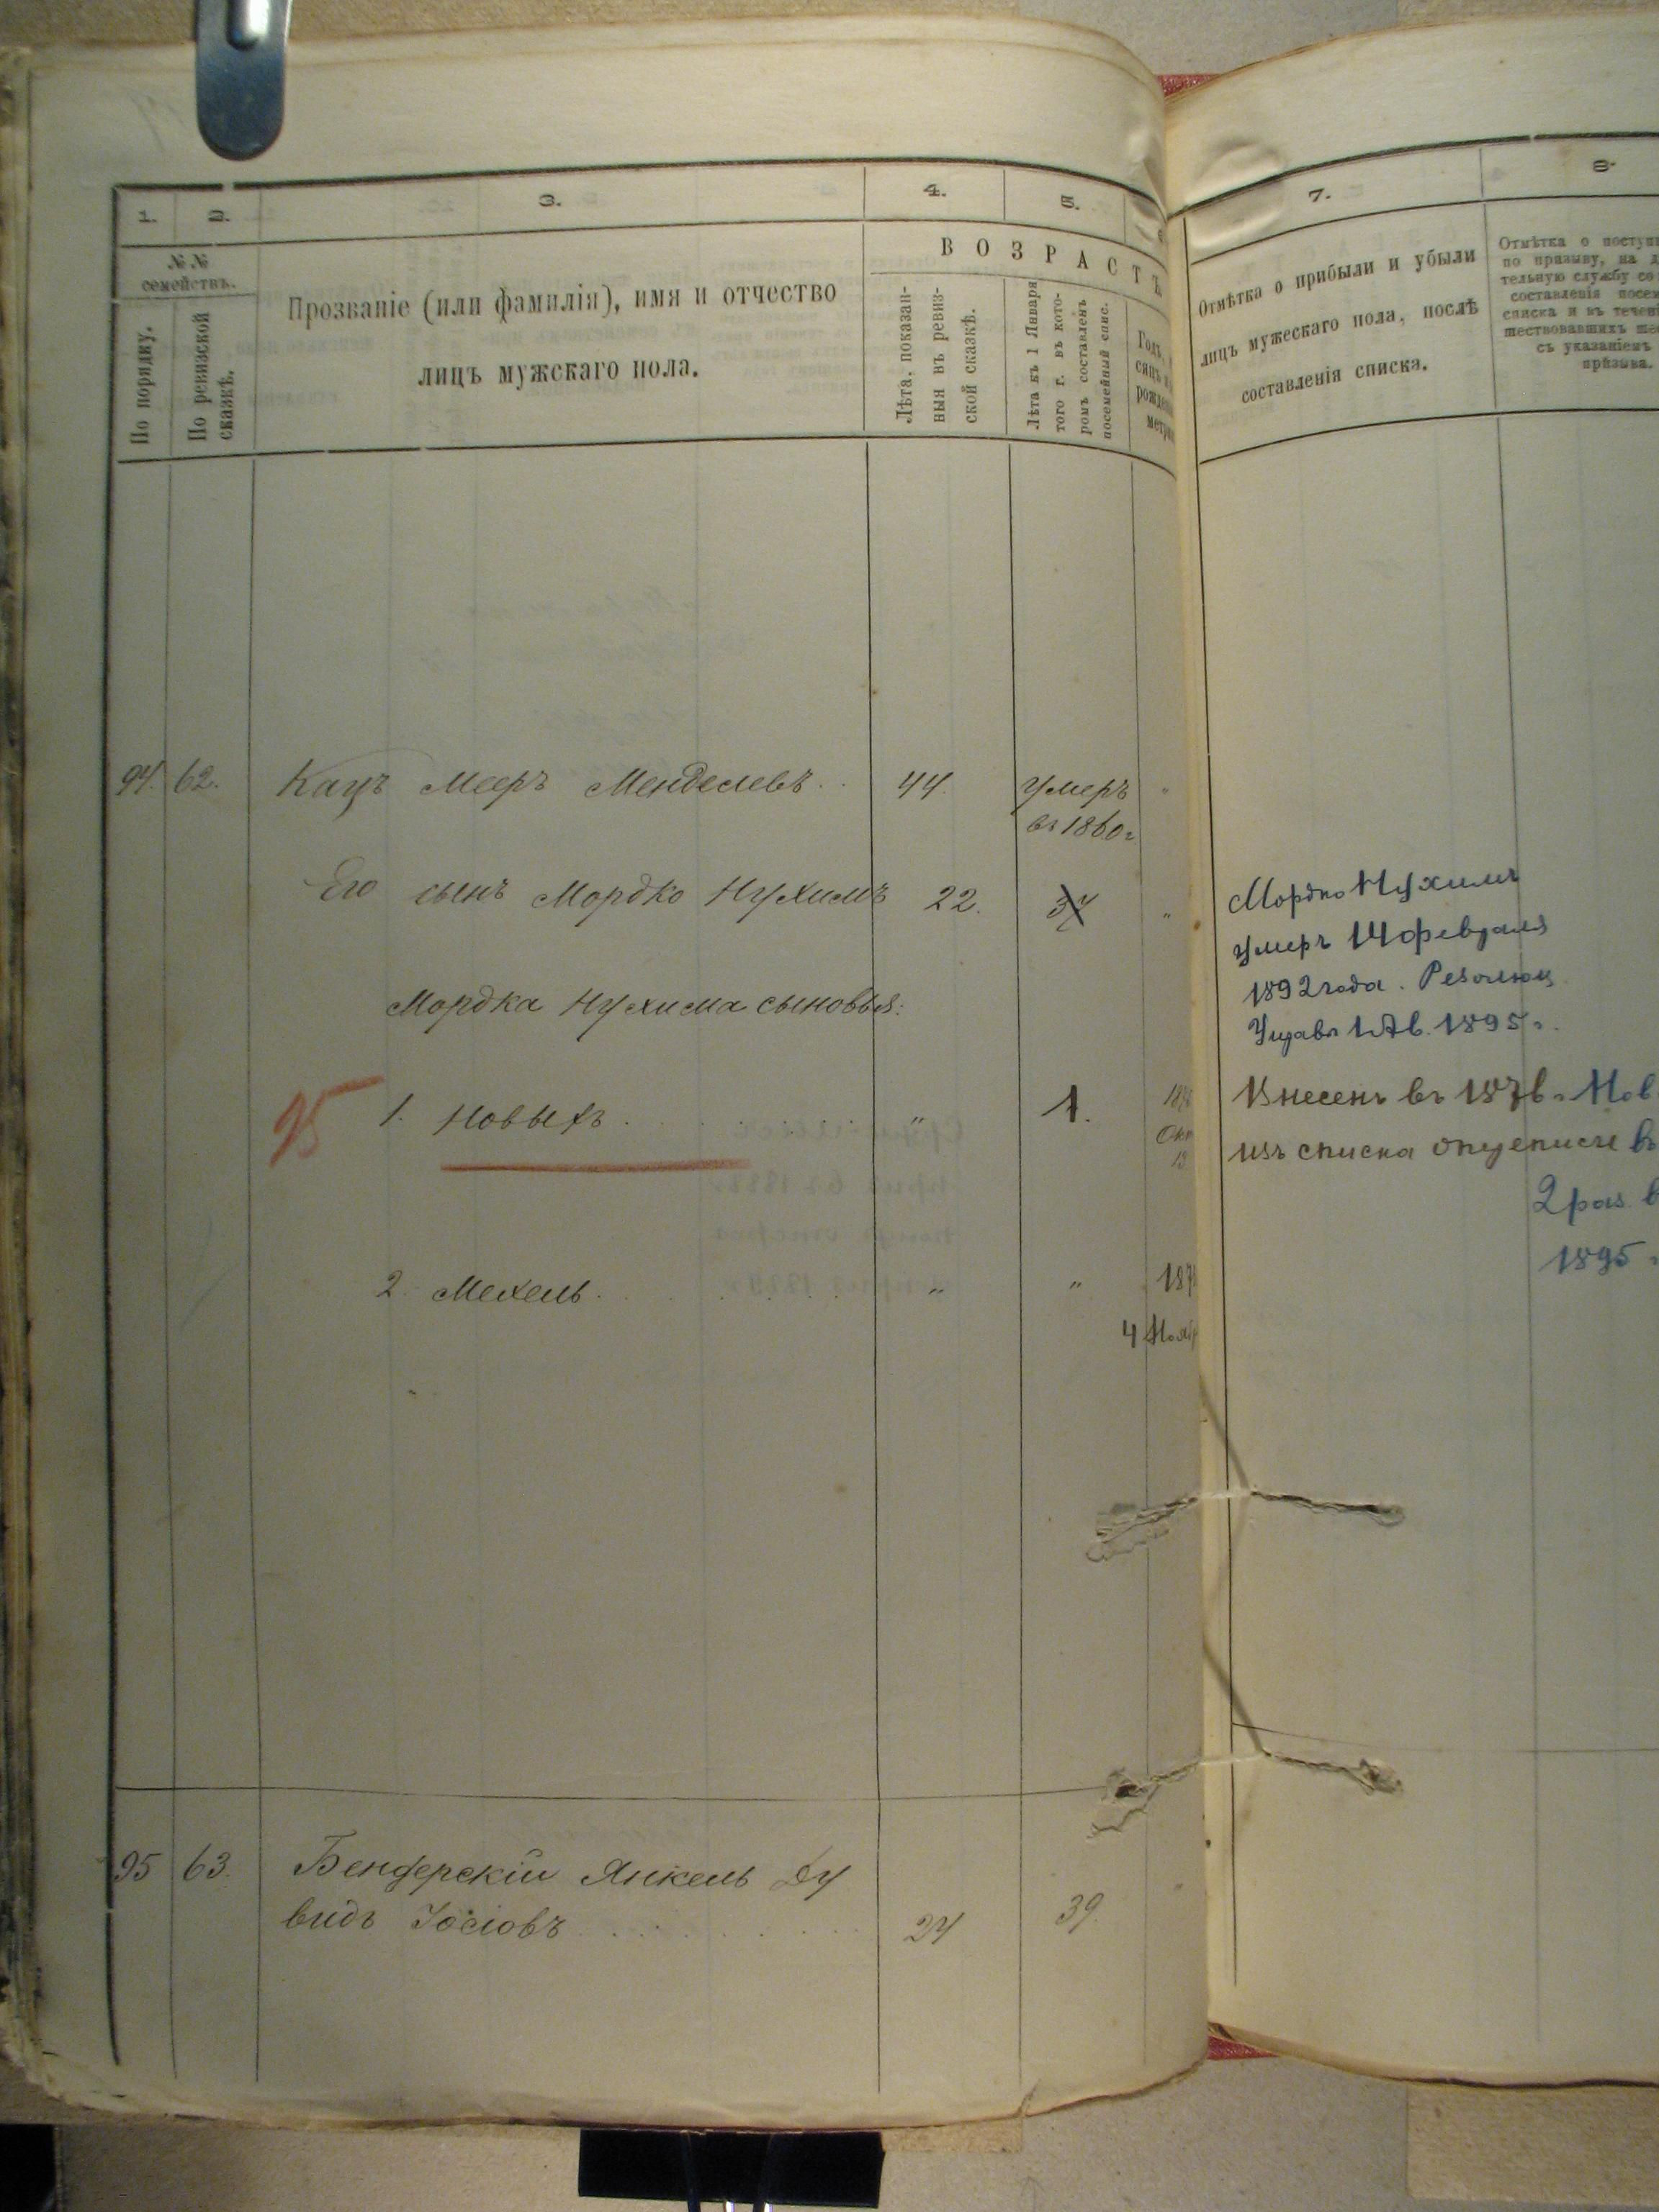 1. 2. 3. 4. 5.
№ № семействъ.
По порядку.
По ревизской сказкѣ.
Прозваніе (или фамилія), имя и отчество
лицъ мужскаго пола.
ВОЗРАСТЪ
Лѣта, показан-
ныя въ ревиз-
ской сказкѣ.
Лѣта къ 1 Января
того г. въ кото-
ромъ составленъ
посемейный спис.
Годъ,
94. 62. Кацъ Мееръ Менделевъ 44. умеръ
въ 1860 г
Его сынъ Мордко Нухимъ 22. 37 "
Мордка Нухима сыновья:
95
1. Новыхъ " 1. Окт
2 Мехель " " 187
4 Нояб
95 63. Бендерскій Янкель Ду
видъ Іосіовъ 24 39. "
7. 8.
Отмѣтка о прибыли и убыли
лицъ мужескаго пола, послѣ
составленія списка.
Отмѣтка о поступ
по призыву, на д
тельную службу со
составленія посем
списка и въ течен
шествовавшихъ ше
съ указаніемъ
призыва.
Мордко Нухимъ
умеръ 14 февраля
1892 года. Резолюц
Управ 1895 г.
Внесенъ въ 1876 г Нов
изъ списка въ
2 раз. в
1895 г